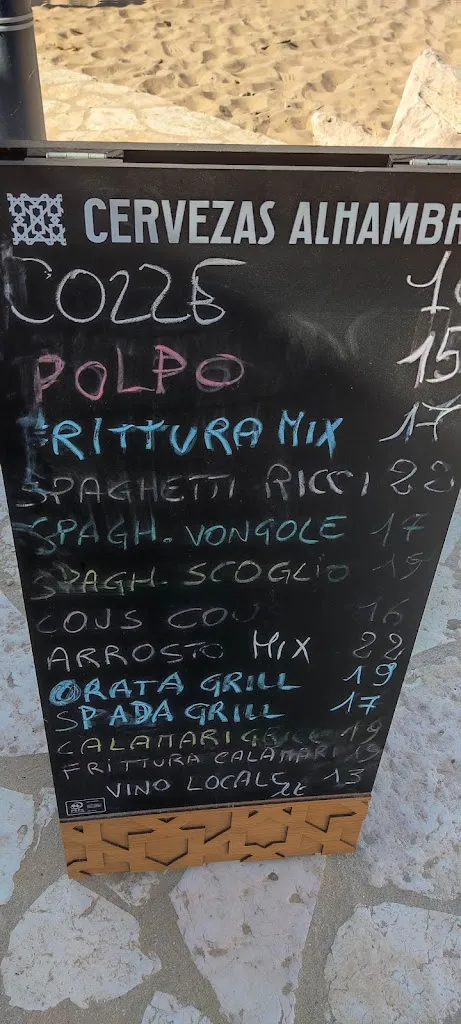 CERVEZAS ALHAMBR
COZZE
POLPO 15
FRITTURA MIX 17
SPAGHETTI RICCI 22
SPAGH. VONGOLE 17
SPAGH. SCOGLIO 19
COUS COU 16
ARROSTO MIX 22
ORATA GRILL 19
SPADA GRILL 17
CALAMARI GRILL 19
FRITTURA CALAMARI 19
VINO LOCALE 13